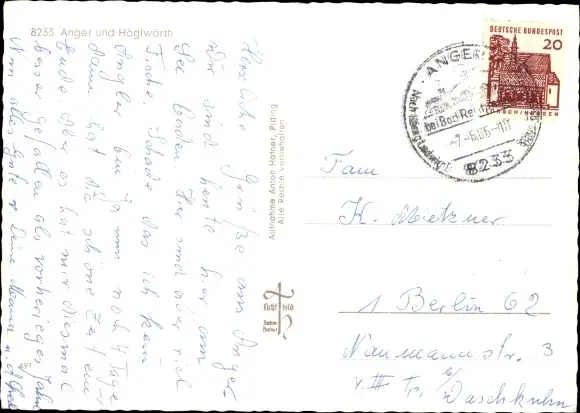 8233 Anger und Höglwörth
Herzliche Grüße aus Anger
Wir sind heute hier am
See baden. Hier sind aber viel
Fische. Schade das ich kein
Angler bin. Ja nun noch 4 Tage
dann hat die schöne Zeit ein
Ende. Aber es hat mir diesmal
besser gefallen als voriges Jahr
Nun alles Gute Deine Mama
Aufnahme Anton Hafner, Piding
Alle Rechte vorbehalten
licht bild
DEUTSCHE BUNDESPOST
20
LORSCH/HESSEN
ANGER
bei Bad Reichenhall
-7.-6.66-18
8233
Fam
K. Mietzner
1 Berlin 62
Naumannstr. 3
v. III Tr. b/ Waschkuhn